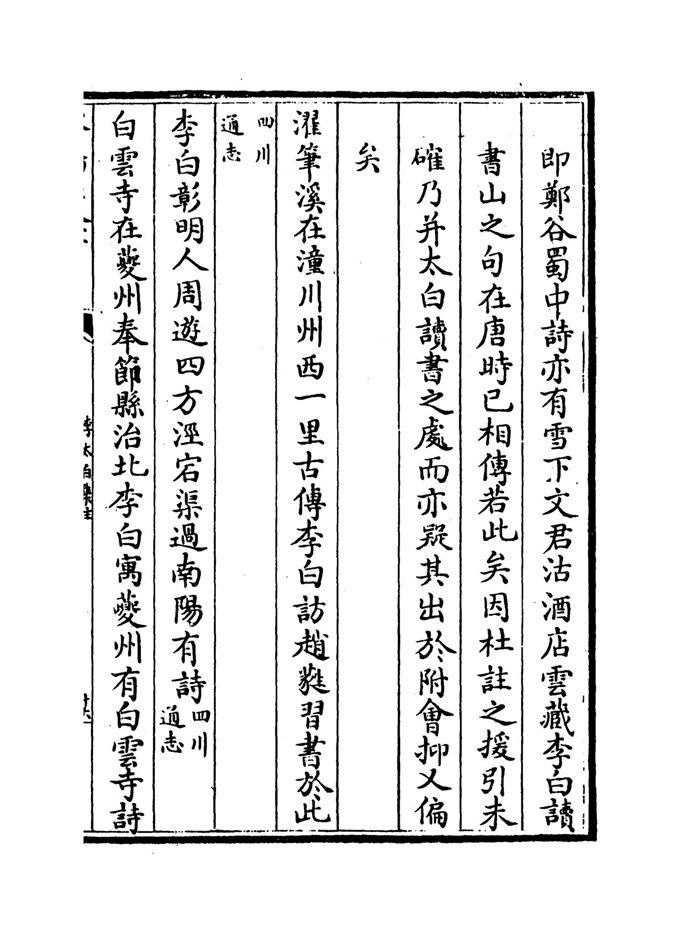 即鄭谷蜀中詩亦有雪下文君沽酒店雲藏李白讀
書山之句在唐時已相傳若此矣因杜註之援引未
確乃并太白讀書之處而亦疑其出於附會抑又偏
矣
濯筆溪在潼川州西一里古傳李白訪趙蕤習書於此
四川
通志
李白彰明人周遊四方涇宕渠過南陽有詩四川
通志
白雲寺在夔州奉節縣治北李白寓夔州有白雲寺詩
李太白集注